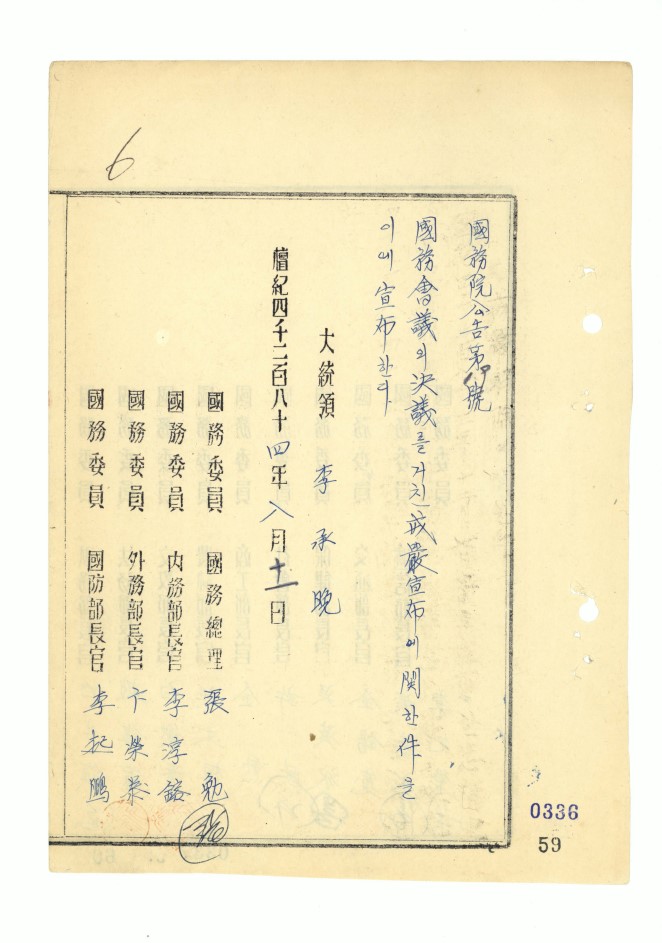 6
國務院公告第 號
國務會議의 決議를 거친 戒嚴宣布에 関한 件을
이에 宣布한다
大統領 李承晩
檀紀四千二百八十四年 八月 十一日
國務委員 國務總理 張勉
國務委員 內務部長官 李淳鎔
國務委員 外務部長官 卞榮泰
國務委員 國防部長官 李起鵬
0336
59